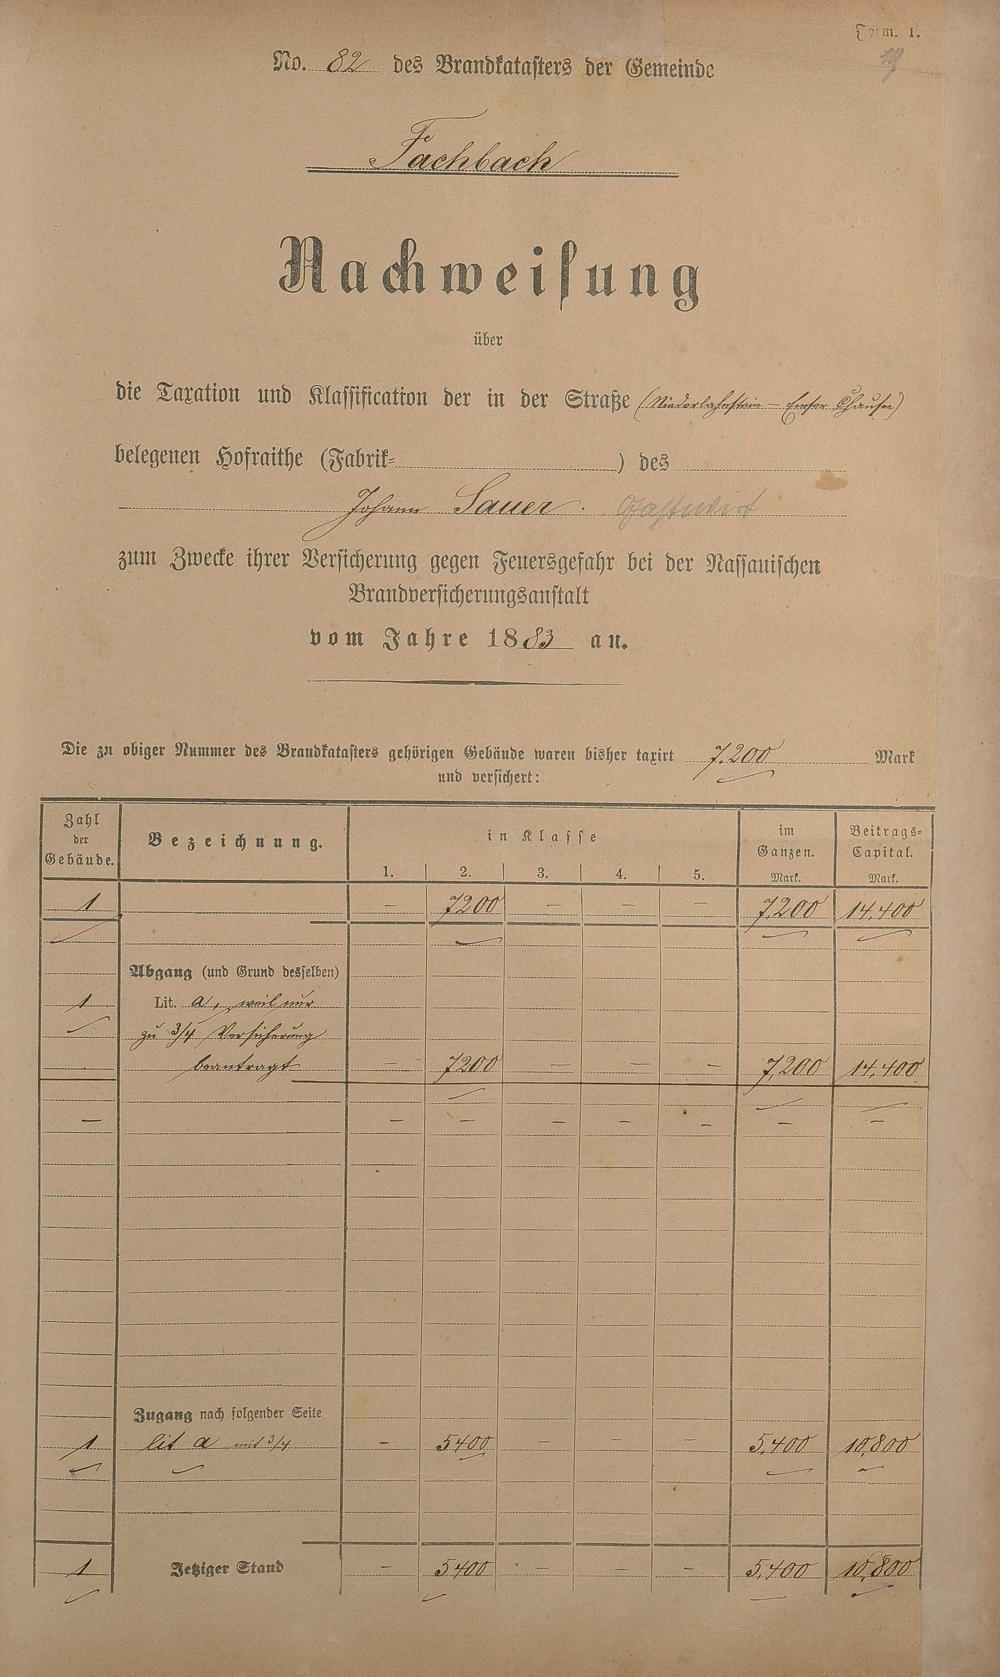 Form. 1.
No. 82 des Brandkatasters der Gemeinde
Fachbach
Nachweisung
über
die Taxation und Klassification der in der Straße (Niederlahnstein – Emser Chausee)
belegenen Hofraithe (Fabrik= ) des
Johann Sauer. Gastwirt
zum Zwecke ihrer Versicherung gegen Feuersgefahr bei der Nassauischen
Brandversicherungsanstalt
vom Jahre 1883 an.
Die zu obiger Nummer des Brandkatasters gehörigen Gebäude waren bisher taxirt 7,200 Mark
und versichert:
Zahl der Gebäude. Bezeichnung. in Klasse im Ganzen. Beitrags=Capital.
1. 2. 3. 4. 5. Mark. Mark.
1 – 7200 – – – 7,200 14,400
Abgang (und Grund desselben)
1 Lit. a, weil nur
zu 3/4 Versicherung
beantragt – 7200 – – – 7,200 14,400
– – – – – – – –
Zugang nach folgender Seite
1 lit a mit 3/4 – 5400 – – – 5,400 10,800
1 Jetziger Stand – 5400 – – – 5,400 10,800